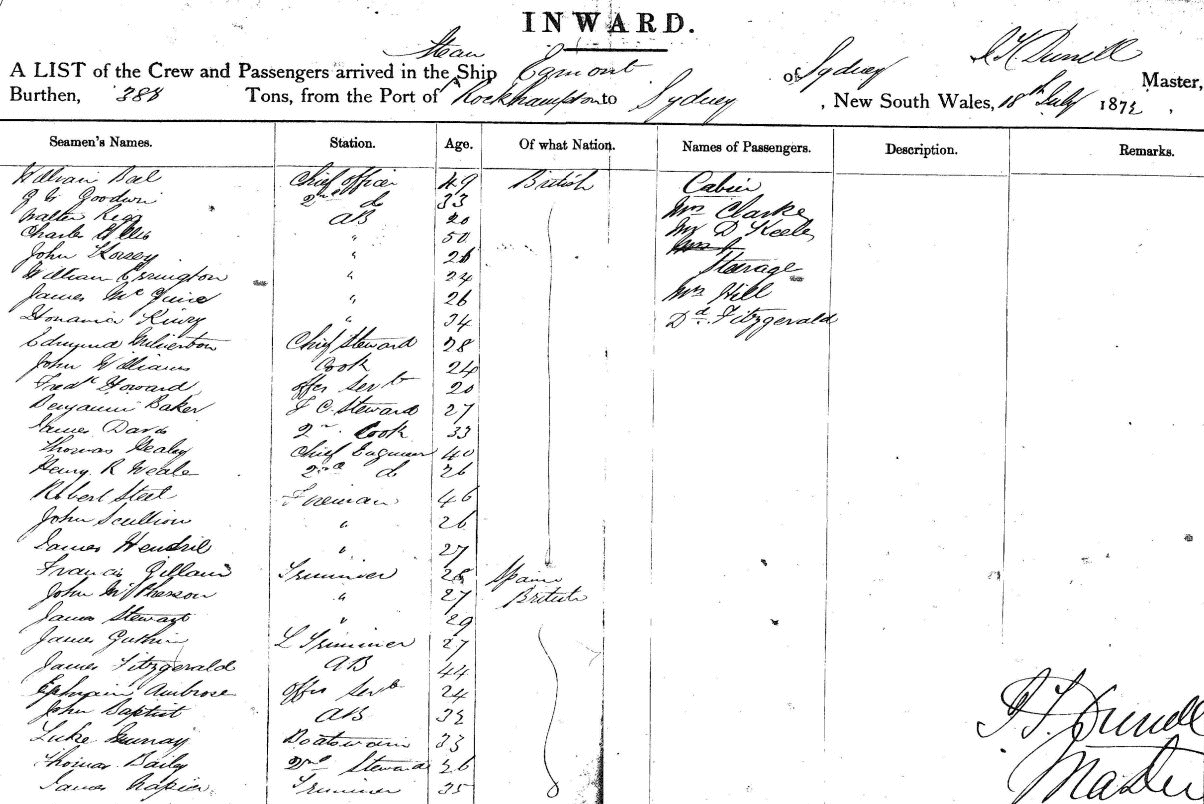 INWARD.
Steam
A LIST of the Crew and Passengers arrived in the Ship Egmont of Sydney Master,
Burthen, 388 Tons, from the Port of Rockhampton to Sydney , New South Wales, 18th July 1872 ,
Seamen's Names. Station. Age. Of what Nation. Names of Passengers. Description. Remarks.
William Chief officer 49 British Cabin
Goodwin 2nd do 33 Mrs Clarke
Walter AB 20 Mr D Keele
Charles Ellis " 50 Mrs
John " 26 Steerage
William Errington " 24 Mrs Hill
James McGuire " 26
" 34 Dd. Fitzgerald
Edmund Milverton Chief Steward 28
John Williams Cook 24
Fredk Howard offrs Servt 20
Benjamin Baker F C Steward 27
James Davis 2nd Cook 33
Thomas Healey Chief Engineer 40
Henry R Weale 2nd do 26
Robert Steel Fireman 46
John Scullion " 26
James Hendril " 27
Francis Gillam Trimmer 28 Spain
John McPherson " 27 British
James Stewart " 29
James Guthrie L Trimmer 27
James Fitzgerald AB 44
Ephraim Ambrose offrs Servt 24
John Baptist AB 32
Luke Murray Boatswain 33
Thomas Daily 2nd Steward 26
James Napier Trimmer 35
Master